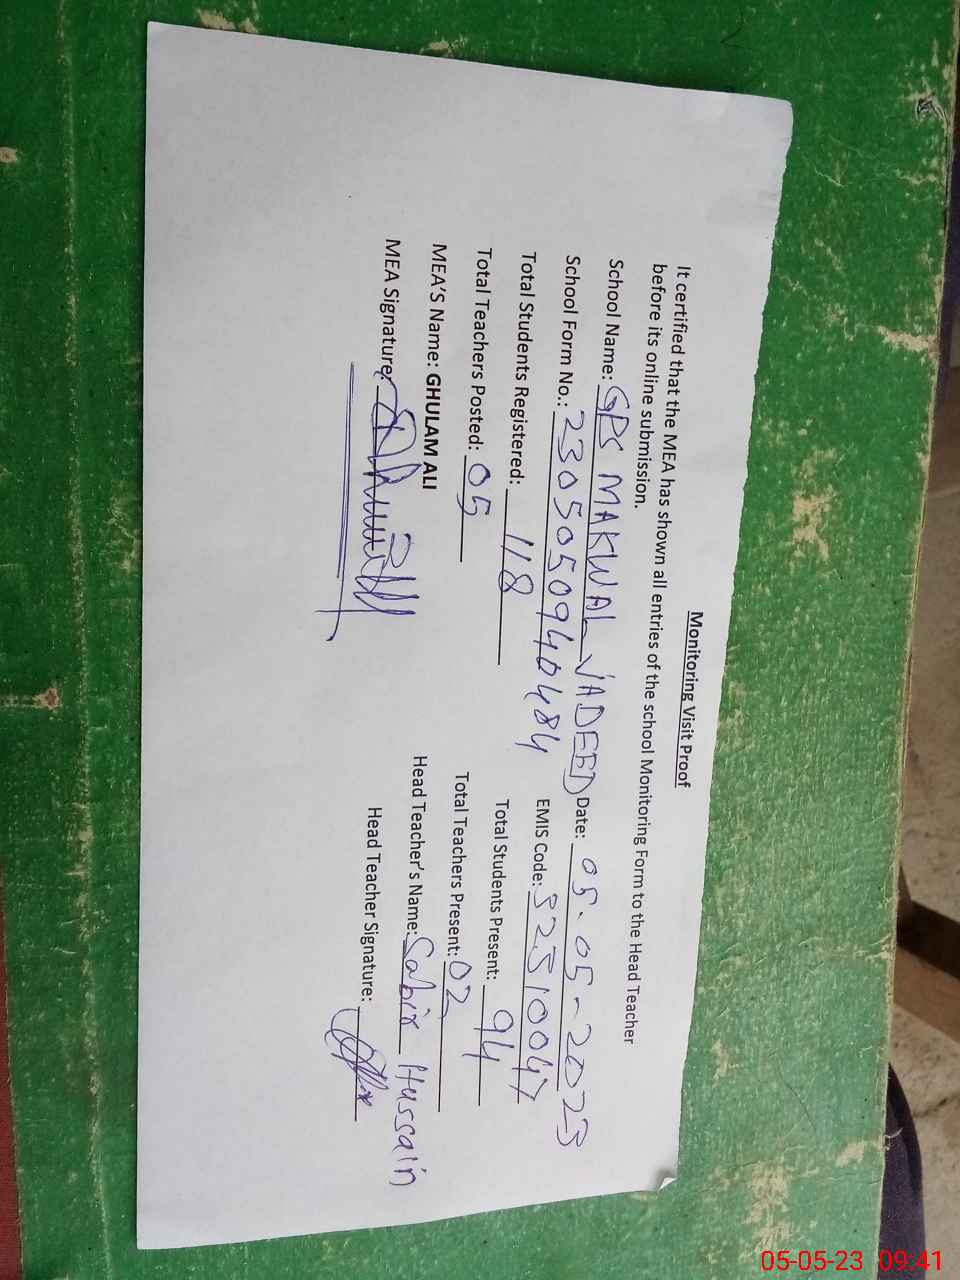 Monitoring Visit Proof
It certified that the MEA has shown all entries of the school Monitoring Form to the Head Teacher
before its online submission.
School Name: GPS MAKWAL JADEED Date: 05-05-2023
School Form No.: 2305050940484 EMIS Code: 32510047
Total Students Registered: 118 Total Students Present: 94
Total Teachers Posted: 05 Total Teachers Present: 02
MEA'S Name: GHULAM ALI Head Teacher's Name: Sabir Hussain
MEA Signature: Head Teacher Signature:
05-05-23 09:41